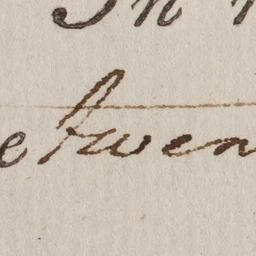 In
etwen